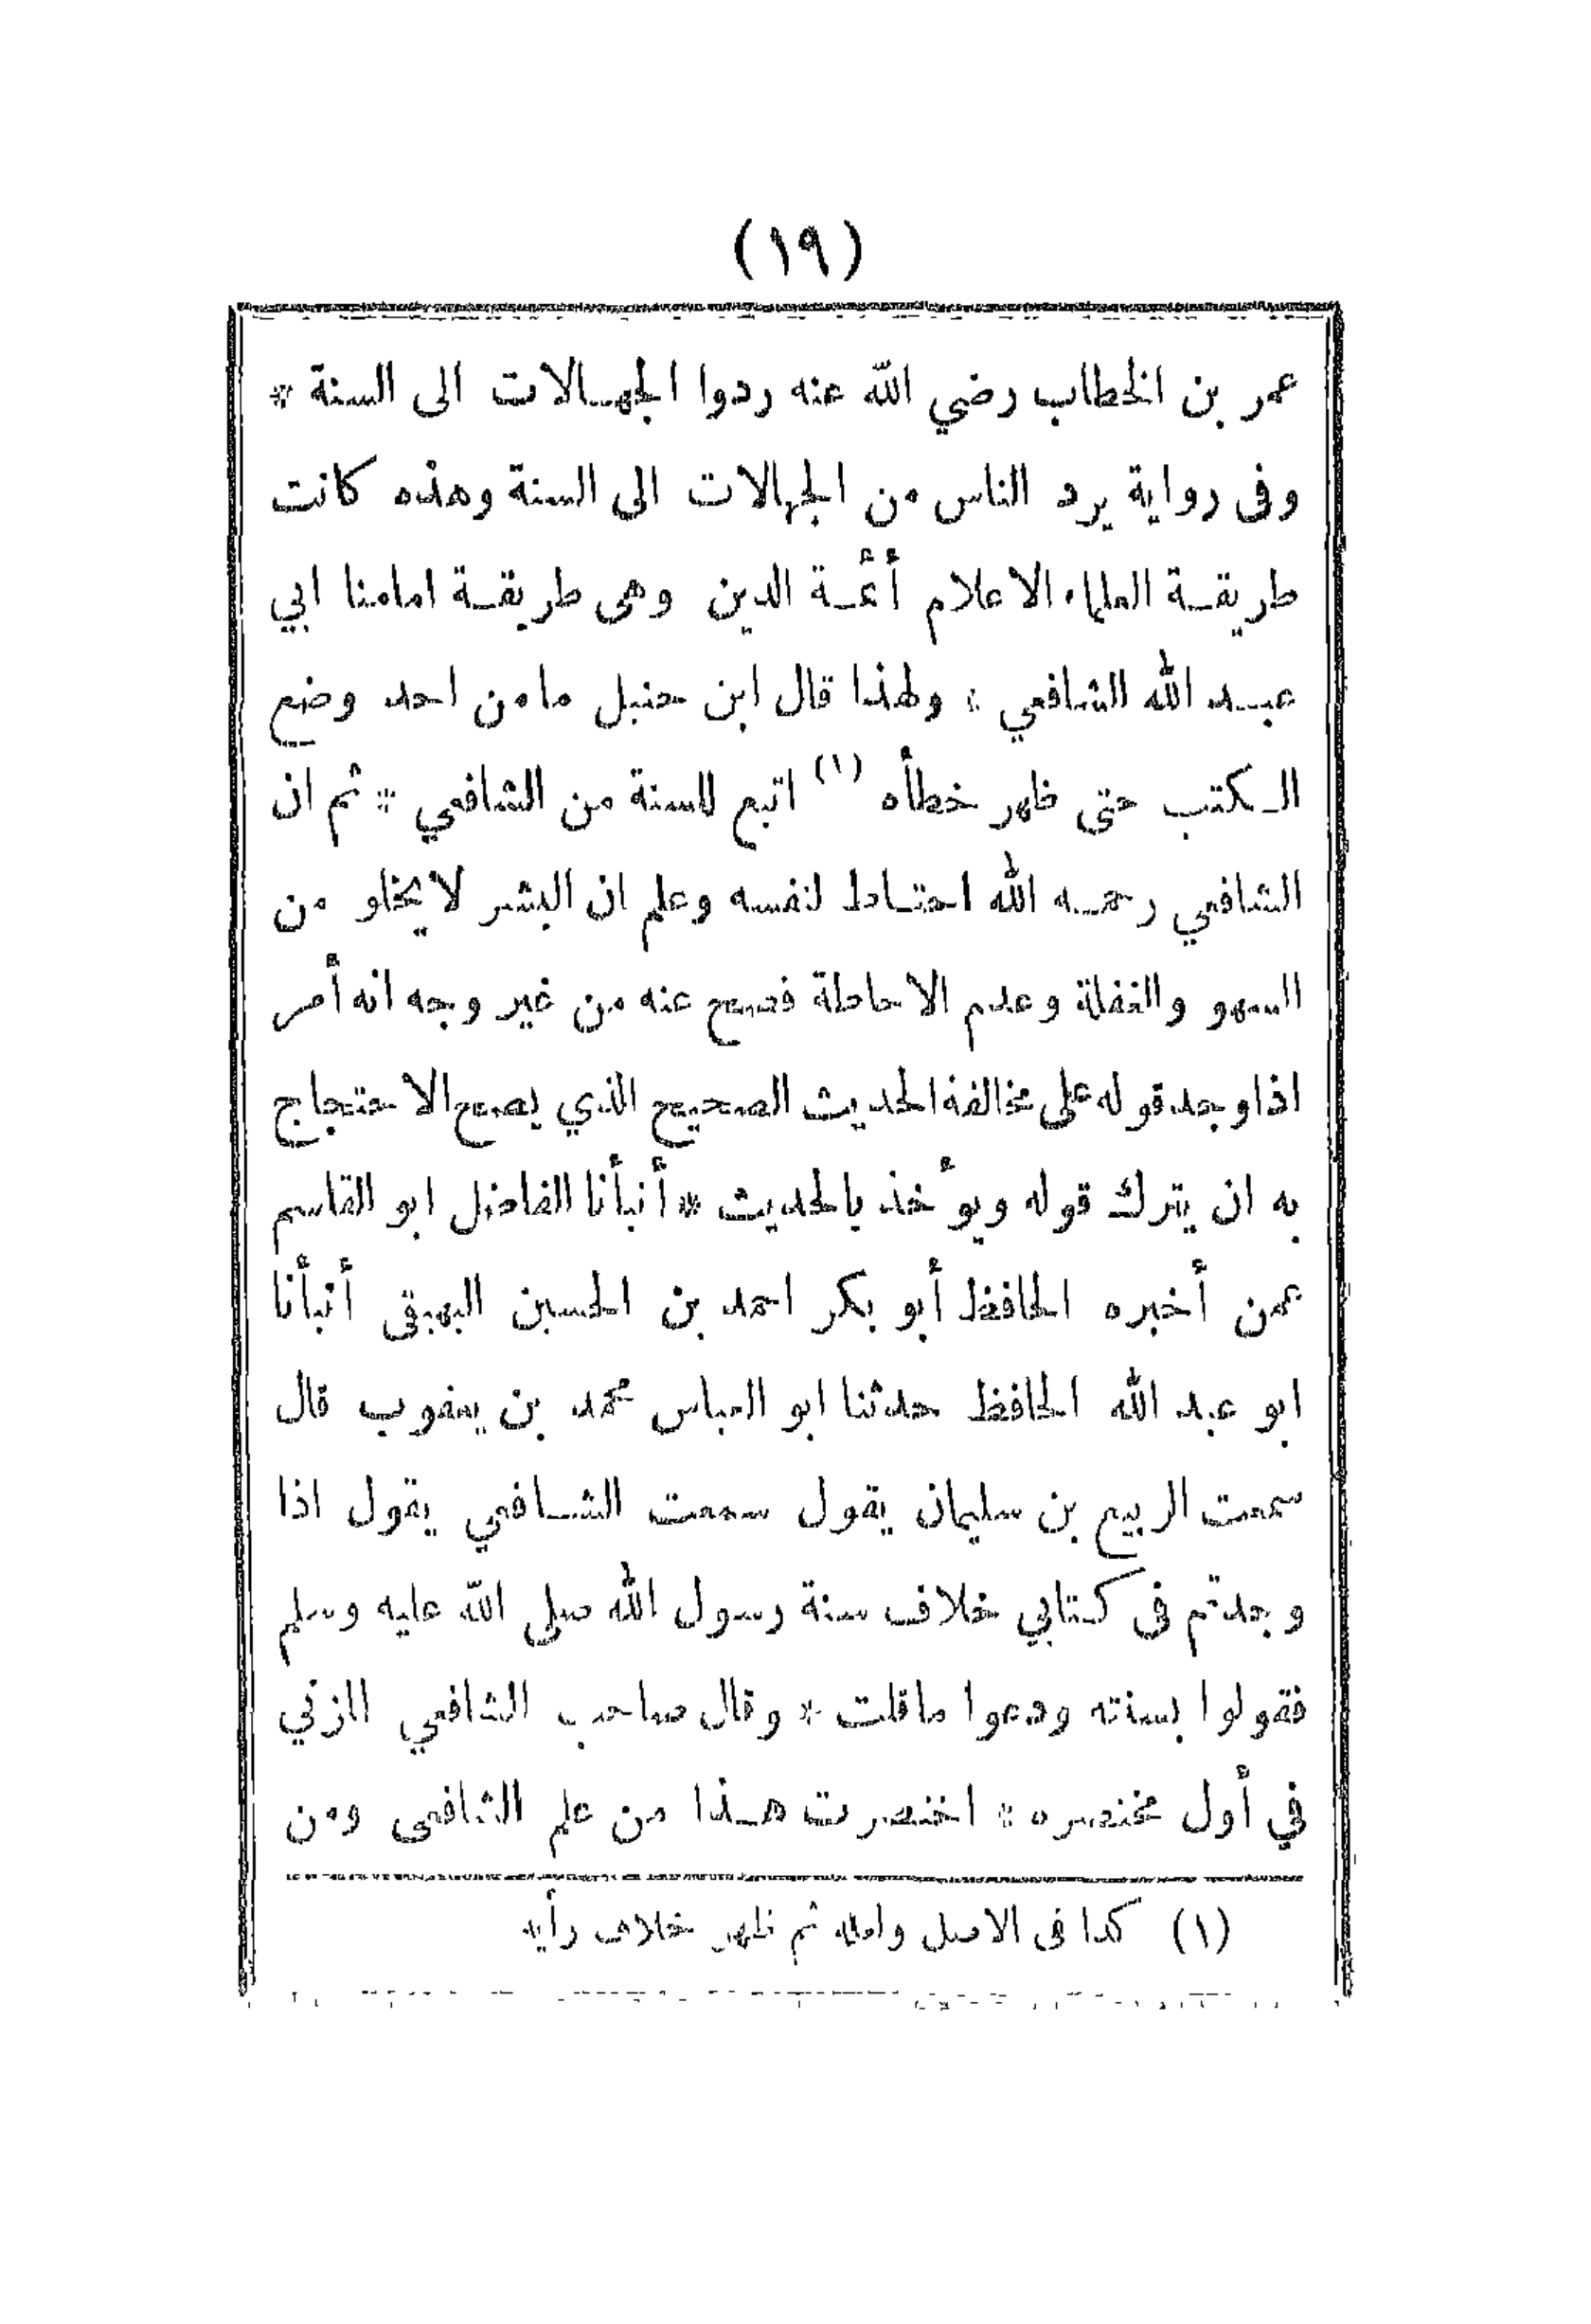 (١٩)
عمر بن الخطاب رضي الله عنه ردوا الجهالات الى السنة *
وفى رواية يرد الناس من الجهالات الى السنة وهذه كانت
طريقة العلماء الاعلام أئمة الدين وهى طريقة امامنا ابي
عبد الله الشافعي * ولهذا قال ابن حنبل مامن احد وضع
الكتب حتى ظهر خطأه (١) اتبع للسنة من الشافعي * ثم ان
الشافعي رحمه الله احتاط لنفسه وعلم ان البشر لا يخلو من
السهو والغفلة وعدم الاحاطة فصح عنه من غير وجه انه أمر
اذا وجد قوله على مخالفة الحديث الصحيح الذي يصح الاحتجاج
به ان يترك قوله ويؤخذ بالحديث * أنبأنا الفاضل ابو القاسم
عمن أخبره الحافظ أبو بكر احمد بن الحسين البهيقى أنبأنا
ابو عبد الله الحافظ حدثنا ابو العباس محمد بن يعقوب قال
سمعت الربيع بن سليمان يقول سمعت الشافعي يقول اذا
وجدتم فى كتابي خلاف سنة رسول الله صلى الله عليه وسلم
فقولوا بسنته ودعوا ماقلت * وقال صاحب الشافعي المزني
في أول مختصره * اختصرت هذا من علم الشافعى ومن
(١) كذا فى الاصل ولعله ثم ظهر خلاف رأيه